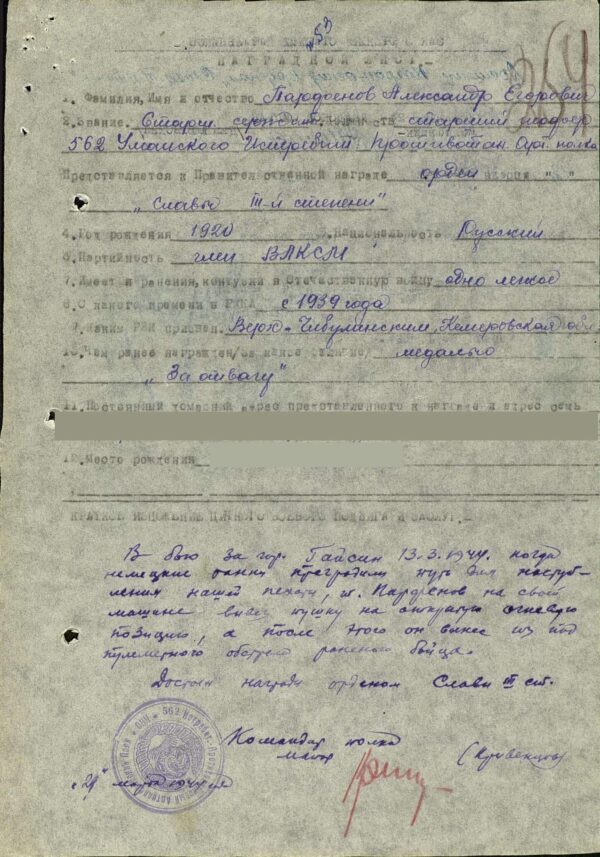 № 53
НАГРАДНОЙ ЛИСТ
1. Фамилия, Имя и отчество Парфенов Александр Егорович
2. Звание. Старш. сержант старший шофер
562 Уманского Истребит. Противотан. Арт. полка
Представляется к Правительственной награде орден
"Славы III-й степени"
4. Год рождения 1920 5. Национальность Русский
6. Партийность член ВЛКСМ
7. Имеет ли ранения, контузии в Отечественную войну одно легкое
8. С какого времени в РККА с 1939 года
9. Каким РВК призван. Верх-Чибулинским, Кемеровская обл
10. Чем ранее награжден/за какое отличие/ медалью
"За отвагу"
11. Постоянный домашний адрес представленного к награде и адрес семь
12. Место рождения
КРАТКОЕ ИЗЛОЖЕНИЕ ЛИЧНОГО БОЕВОГО ПОДВИГА И ЗАСЛУГ
В бою за гор. Гайсин 13.3.1944. когда
немецкие танки преградили путь для наступ-
ления нашей пехоты, т. Парфенов на своей
машине вывез пушку на открытую огневую
позицию, а после этого он вынес из под
пулеметного обстрела раненого бойца.
Достоин награды орденом Славы III ст.
Командир полка
майор (Кривенцов)
"29" марта 1944